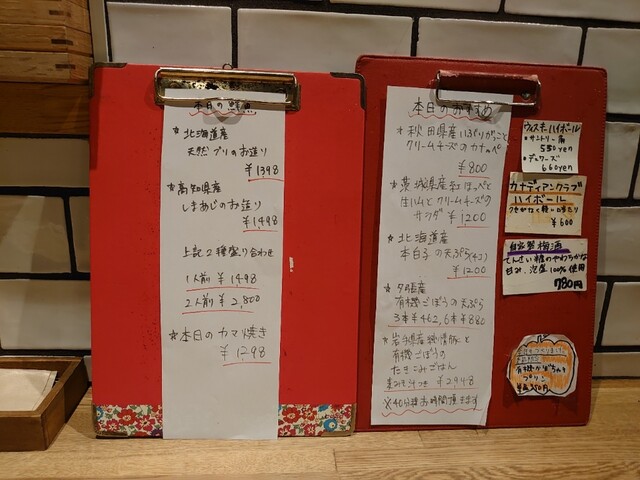 本日の鮮魚
★北海道産
天然ブリのお造り
¥1398
★高知県産
しまあじのお造り
¥1,498
上記2種盛り合わせ
1人前 ¥1498
2人前 ¥2,800
★本日のカマ焼き
¥1,298
本日のおすすめ
★秋田県産いぶりがっこと
クリームチーズのカナッペ
¥800
★茨城県産紅ほっぺと
生ハムとクリームチーズの
サラダ ¥1,200
★北海道産
本白子の天ぷら(4コ)
¥1200
有機ごぼうの天ぷら
3本¥462,6本¥880
有機ごぼうの
たきこみごはん
¥2948
※40分程お時間頂きます
ウィスキーハイボール
・サントリー角
550yen
・デュワーズ
660yen
カナディアンクラブ
ハイボール
¥600
自家製梅酒
てんさい糖のやわらかな
甘み、泡盛100%使用
780円
有機かぼちゃ
プリン